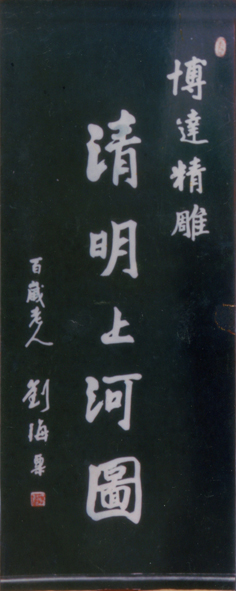 博達精雕
清明上河圖
百歲老人 劉海粟